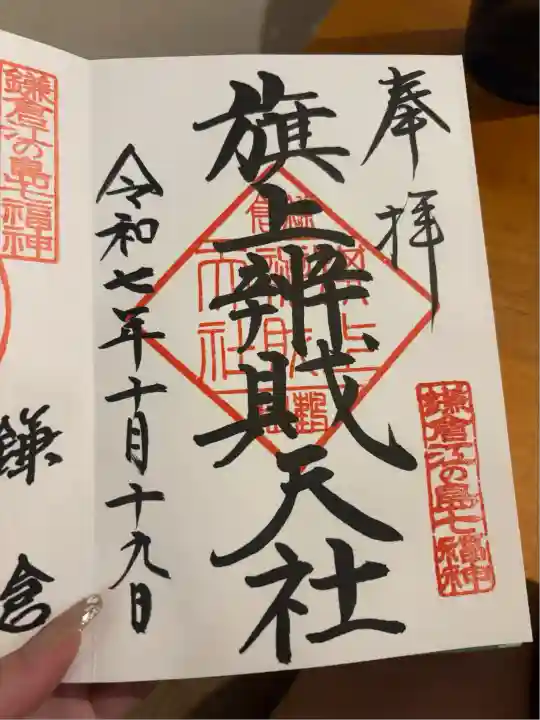 奉拝
鎌倉江の島七福神
旗上辨財天社
令和七年十月十九日
鎌倉江の島七福神
鎌倉